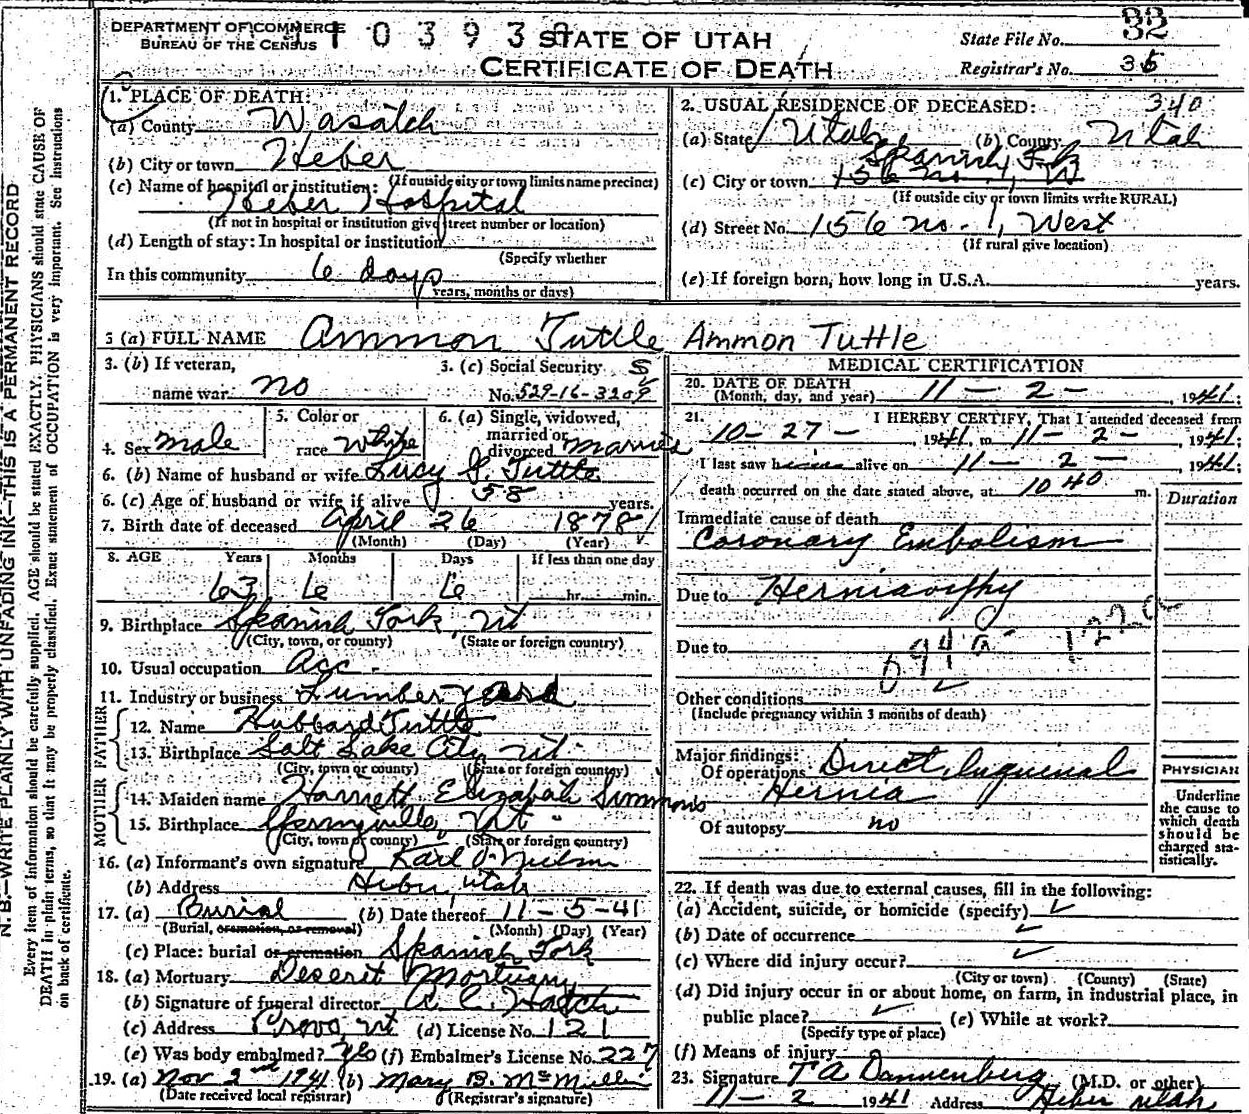 DEPARTMENT OF COMMERCE
BUREAU OF THE CENSUS
STATE OF UTAH
CERTIFICATE OF DEATH
State File No. 32
Registrar's No. 35
1. PLACE OF DEATH:
(a) County Wasatch
(b) City or town Heber
(If outside city or town limits name precinct)
(c) Name of hospital or institution:
Heber Hospital
(If not in hospital or institution give street number or location)
(d) Length of stay: In hospital or institution
(Specify whether
In this community 6 days
years, months or days)
2. USUAL RESIDENCE OF DECEASED: 340
(a) State Utah (b) County Utah
Spanish Fk
(c) City or town 156 no. 1, W
(If outside city or town limits write RURAL)
(d) Street No. 156 no. 1, West
(If rural give location)
(e) If foreign born, how long in U.S.A. years.
3 (a) FULL NAME Ammon Tuttle Ammon Tuttle
3. (b) If veteran,
name war no
3. (c) Social Security
No. 529-16-3209
4. Sex male
5. Color or
race White
6. (a) Single, widowed,
married or
divorced married
6. (b) Name of husband or wife Lucy J. Tuttle
6. (c) Age of husband or wife if alive 58 years.
7. Birth date of deceased April 26 1878
(Month) (Day) (Year)
8. AGE Years Months Days If less than one day
63 6 6 hr. min.
9. Birthplace Spanish Fork, Ut
(City, town, or county) (State or foreign country)
10. Usual occupation Acc.
11. Industry or business Lumber yard
FATHER
12. Name Hubbard Tuttle
13. Birthplace Salt Lake City Ut.
(City, town or county) (State or foreign country)
MOTHER
14. Maiden name Harriett Elizabah Simmons
15. Birthplace Ut
(City, town or county) (State or foreign country)
16. (a) Informant's own signature Karl O. Nielson
(b) Address Heber, Utah
17. (a) Burial (b) Date thereof 11-5-41
(Burial, cremation, or removal) (Month) (Day) (Year)
(c) Place: burial or cremation Spanish Fork
18. (a) Mortuary Deseret Mortuary
(b) Signature of funeral director A. C. Hatch
(c) Address Provo, Ut (d) License No. 121
(e) Was body embalmed? Yes (f) Embalmer's License No. 227
19. (a) Nov 2nd 1941 (b) Mary B. McMullin
(Date received local registrar) (Registrar's signature)
MEDICAL CERTIFICATION
20. DATE OF DEATH
(Month, day, and year) 11-2-, 1941;
21. I HEREBY CERTIFY, That I attended deceased from
10-27-, 1941, to 11-2-, 1941;
I last saw him alive on 11-2-, 1941;
death occurred on the date stated above, at 10 40 m.
Duration
Immediate cause of death
Coronary Embolism
Due to Herniaorphy
Due to
Other conditions
(Include pregnancy within 3 months of death)
Major findings:
Of operations Direct Inguinal
Hernia
Of autopsy no
PHYSICIAN
Underline
the cause to
which death
should be
charged sta-
tistically.
22. If death was due to external causes, fill in the following:
(a) Accident, suicide, or homicide (specify)
(b) Date of occurrence
(c) Where did injury occur?
(City or town) (County) (State)
(d) Did injury occur in or about home, on farm, in industrial place, in
public place? (e) While at work?
(Specify type of place)
(f) Means of injury
23. Signature T A Dannenberg (M.D. or other)
11-2 1941 Address Heber Utah
N. B.—WRITE PLAINLY WITH UNFADING INK—THIS IS A PERMANENT RECORD
Every item of information should be carefully supplied. AGE should be stated EXACTLY. PHYSICIANS should state CAUSE OF
DEATH in plain terms, so that it may be properly classified. Exact statement of OCCUPATION is very important. See Instructions
on back of certificate.